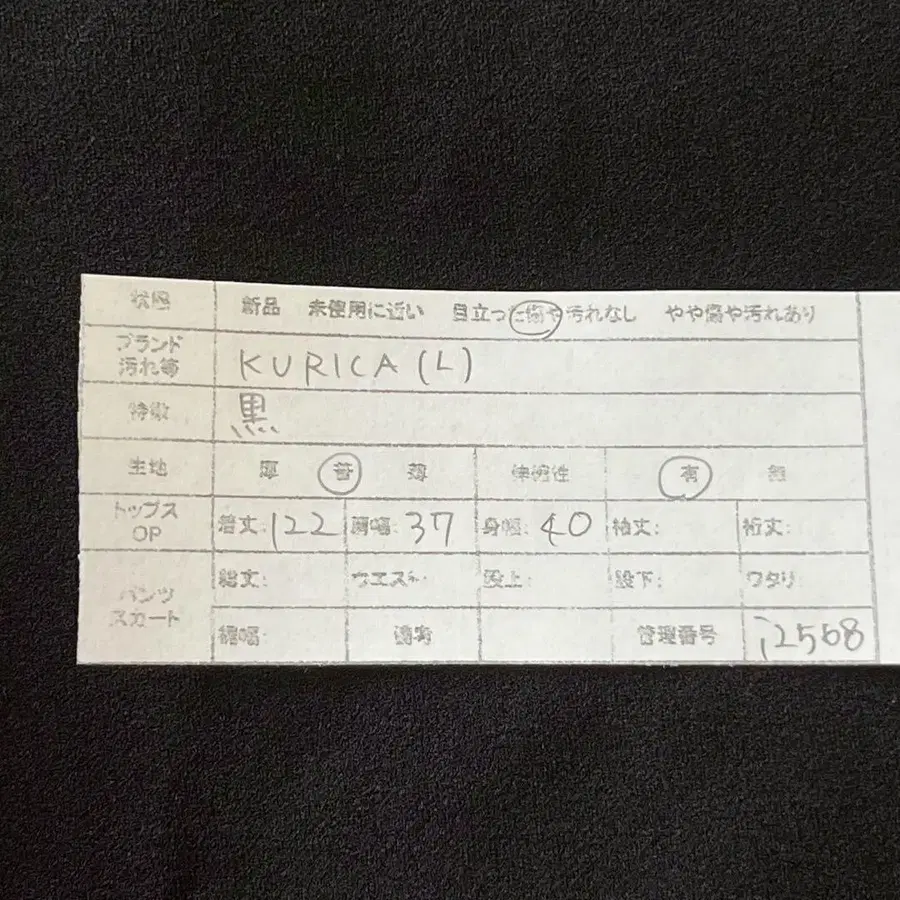 状態 新品 未使用に近い 目立った傷や汚れなし やや傷や汚れあり
ブランド
汚れ等 KURICA (L)
特徴 黒
生地 厚 普 薄 伸縮性 有 無
トップス
OP 着丈: 122 肩幅: 37 身幅: 40 袖丈: 裄丈:
パンツ
スカート
総丈: ウエスト: 股上: 股下: ワタリ:
裾幅: 備考 管理番号 i2568